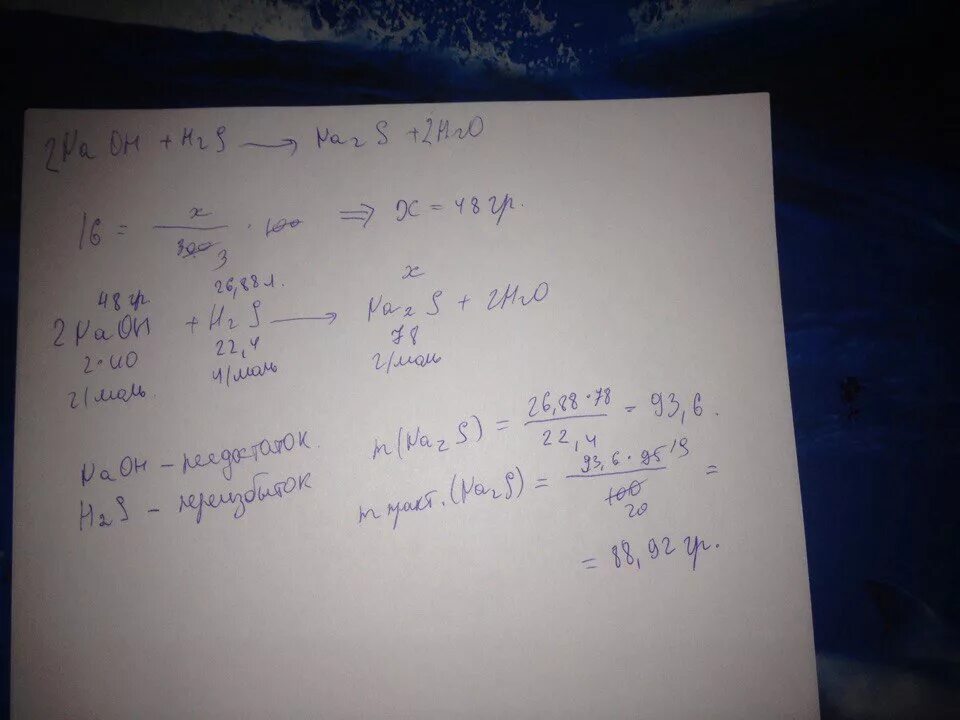 2NaOH + H2S → Na2S + 2H2O
16 = x/300 3 · 100 ⇒ X = 48 гр.
48 гр. 26,88 л. x
2NaOH + H2S → Na2S + 2H2O
2·40 22,4 78
г/моль л/моль г/моль
NaOH – недостаток.
H2S – переизбыток
m(Na2S) = 26,88·78/22,4 = 93,6.
m практ.(Na2S) = 93,6·95 19/100 20 =
= 88,92 гр.